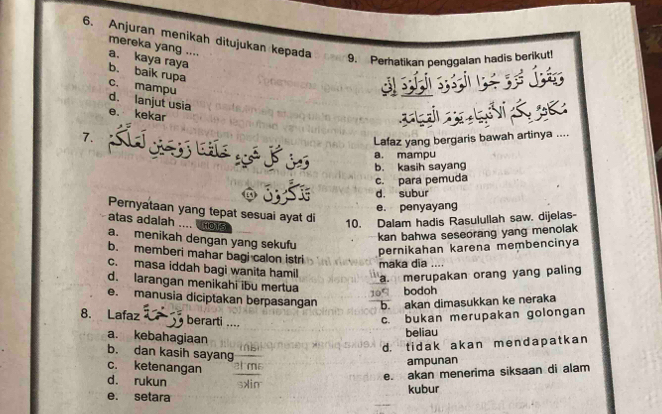 6. Anjuran menikah ditujukan kepada
mereka yang ....
a. kaya raya
b. baik rupa
c. mampu
d. lanjut usia
e. kekar
7. وَمِنْ كُلِّ شَيْءٍ خَلَقْنَا زَوْجَيْنِ لَعَلَّكُمْ
تَذَكَّرُوْنَ ﴿٤٩﴾
Pernyataan yang tepat sesuai ayat di
atas adalah .... HOTS
a. menikah dengan yang sekufu
b. memberi mahar bagi calon istri
c. masa iddah bagi wanita hamil
d. larangan menikahi ibu mertua
e. manusia diciptakan berpasangan
8. Lafaz وَرَحْمَةً berarti ....
a. kebahagiaan
b. dan kasih sayang
c. ketenangan
d. rukun
e. setara
9. Perhatikan penggalan hadis berikut!
وَيَقُوْلُ تَزَوَّجُوا الْوَدُوْدَ الْوَلُوْدَ إِنِّيْ
مُكَاثِرٌ بِكُمُ الْأَنْبِيَاءَ يَوْمَ الْقِيَامَةِ.
Lafaz yang bergaris bawah artinya ....
a. mampu
b. kasih sayang
c. para pemuda
d. subur
e. penyayang
10. Dalam hadis Rasulullah saw. dijelas-
kan bahwa seseorang yang menolak
pernikahan karena membencinya
maka dia ....
a. merupakan orang yang paling
bodoh
b. akan dimasukkan ke neraka
c. bukan merupakan golongan
beliau
d. tidak akan mendapatkan
ampunan
e. akan menerima siksaan di alam
kubur